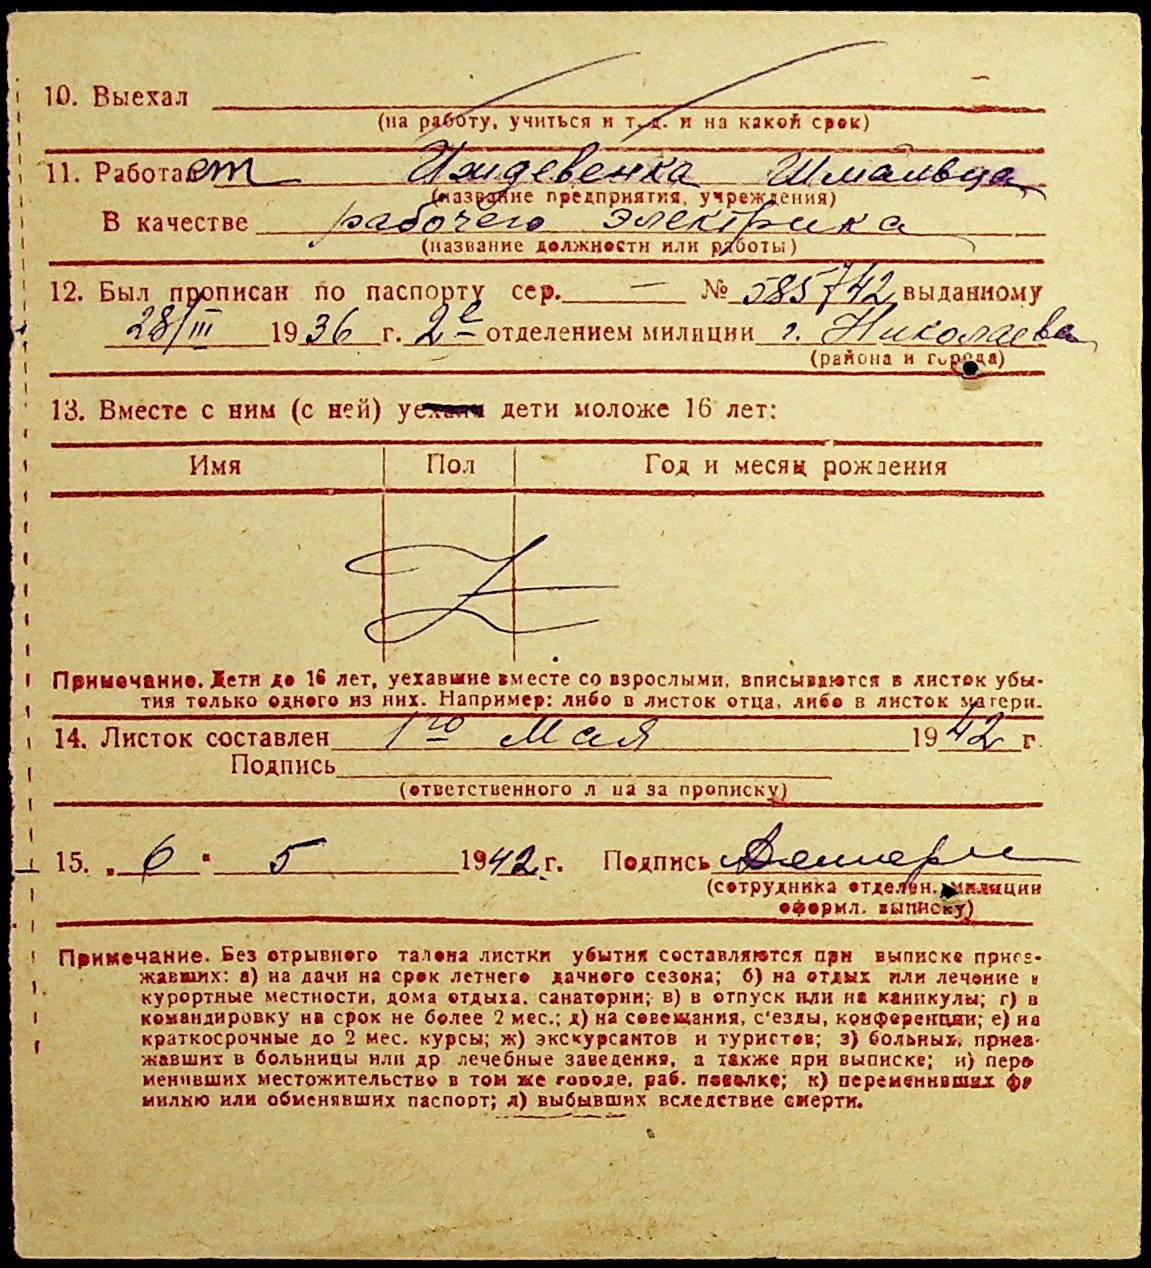 10. Выехал
(на работу, учиться и т. д. и на какой срок)
11. Работает Иждевенка Шмальца
(название предприятия, учреждения)
В качестве рабочего электрика
(название должности или работы)
12. Был прописан по паспорту сер. — № 585742 выданному
28/III 1936 г. 2е отделением милиции г. Николаева
(района и города)
13. Вместе с ним (с ней) уехали дети моложе 16 лет:
Имя Пол Год и месяц рождения
Примечание. Дети до 16 лет, уехавшие вместе со взрослыми, вписываются в листок убы-
тия только одного из них. Например: либо в листок отца, либо в листок матери.
14. Листок составлен 1го Мая 1942 г.
Подпись
(ответственного лица за прописку)
15. „ 6 " 5 1942 г. Подпись
(сотрудника отделен. милиции
оформл. выписку)
Примечание. Без отрывного талона листки убытия составляются при выписке приез-
жавших: а) на дачи на срок летнего дачного сезона; б) на отдых или лечение в
курортные местности, дома отдыха, санатории; в) в отпуск или на каникулы; г) в
командировку на срок не более 2 мес.; д) на совещания, с'езды, конференции; е) на
краткосрочные до 2 мес. курсы; ж) экскурсантов и туристов; з) больных, приез-
жавших в больницы или др. лечебные заведения, а также при выписке; и) пере
менивших местожительство в том же городе, раб. поселке; к) переменивших фа
милию или обменявших паспорт; л) выбывших вследствие смерти.